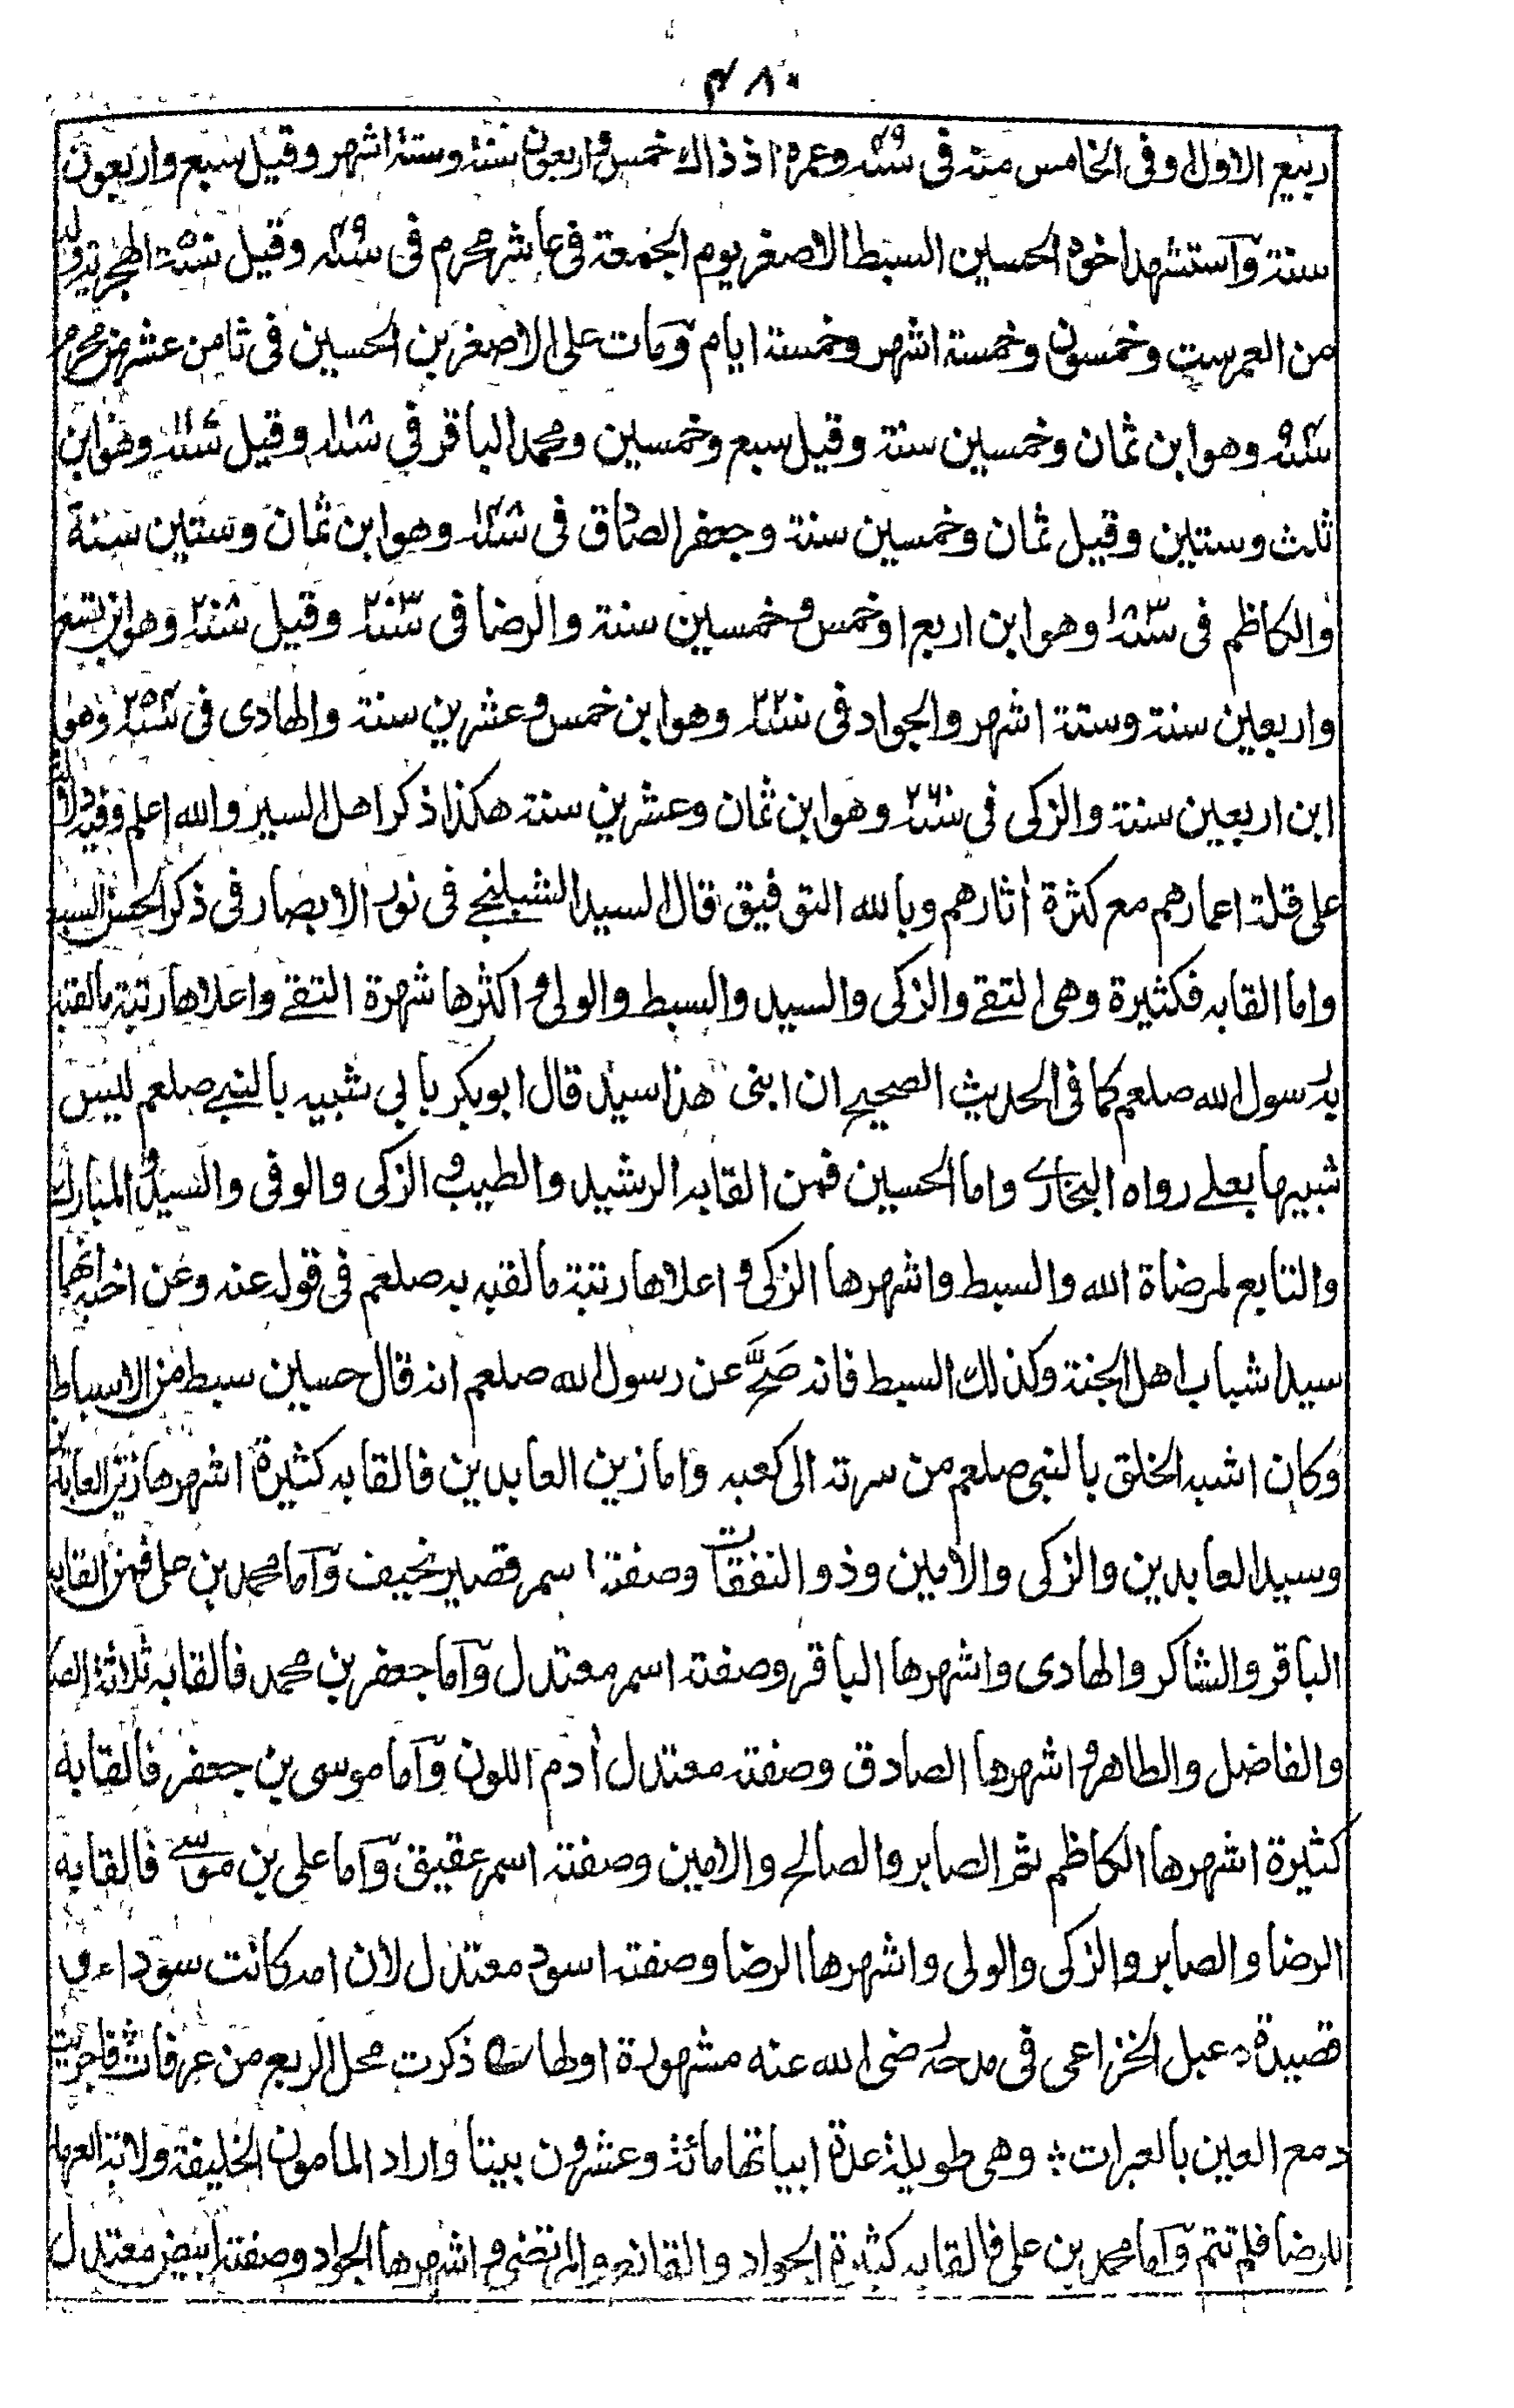 ٤٨٠
ربيع الاول وفى الخامس منه فى سنة ٤٩ وعمره اذ ذاك خمس واربعون سنة وستة اشهر وقيل سبع واربعون
سنة وآستشهد اخوه الحسين السبط الاصغر يوم الجمعة فى عاشر محرم فى سنة وقيل سنة الهجرية وله
من العمر ست وخمسون وخمسة اشهر وخمسة ايام ومات على الاصغر بن الحسين فى ثامن عشر من محرم
سنة ٩٤ وهو ابن ثمان وخمسين سنة وقيل سبع وخمسين ومحمد الباقر في سنة ١١٨ وقيل سنة ١١٤ وهو ابن
ثلث وستين وقيل ثمان وخمسين سنة وجعفر الصادق فى سنة ١٤٨ وهو ابن ثمان وستين سنة
والكاظم فى سنة ١٨٣ وهو ابن اربع او خمس وخمسين سنة والرضا فى سنة ٢٠٣ وقيل سنة ٢٠٨ وهو ابن تسع
واربعين سنة وستة اشهر والجواد فى سنة ٢٢٠ وهو ابن خمس وعشرين سنة والهادى فى سنة ٢٥٤ وهو
ابن اربعين سنة والزكى فى سنة ٢٦٠ وهو ابن ثمان وعشرين سنة هكذا ذكر اهل السير والله اعلم وفيه
على قلة اعمارهم مع كثرة أثارهم وبالله التوفيق قال السيد الشبلنجے فى نور الابصار فى ذكر الحسن السبط
واما القابه فكثيرة وهى التقے والزكى والسيد والسبط والولى و اكثرها شهرة التقے واعلاها رتبة ما لقبه
به رسول الله صلعم كما فى الحديث الصحيح ان ابنى هذا سيد قال ابو بكر بابي شبيه بالنبے صلعم ليس
شبيها بعلے رواه البخارے واما الحسين فمن القابه الرشيد والطيب و الزكى والوفى والسيد و المبارك
والتابع لمرضاة الله والسبط واشهرها الزكى و اعلاها رتبة ما لقبه به صلعم فى قوله عنه وعن اخيه انهما
سيدا شباب اهل الجنة وكذلك السبط فانه صَحَّ عن رسول الله صلعم انه قال حسين سبط من الاسباط
وكان اشبه الخلق بالنبى صلعم من سرته الى كعبه واما زين العابدين فالقابه كثيرة اشهرها زين العابدين
وسيد العابدين والزكى والامين وذو النفقات وصفته اسمر قصير نحيف وآما محمد بن على فمن القابه
الباقر والشاكر والهادى واشهرها الباقر وصفته اسمر معتدل وآما جعفر بن محمد فالقابه ثلاثة
والفاضل والطاهر و اشهرها الصادق وصفته معتدل أدم اللون وآما موسى بن جعفر فالقابه
كثيرة اشهرها الكاظم ثم الصابر والصالح والامين وصفته اسمر عقيق وآما على بن موسے فالقابه
الرضا والصابر والزكى والولى واشهرها الرضا وصفته اسود معتدل لان امه كانت سوداء و
قصيدة دعبل الخزاعى فى مدحه رضى الله عنه مشهورة اولها ذكرت محل الربع من عرفات فاجريت
دمع العين بالعبرات وهى طويلة عدة ابياتها مائة وعشرون بيتا واراد المامون الخليفة ولاية العهد
للرضا فلم تتم وآما محمد بن على فالقابه كثيرة الجواد والقانع والمرتضى و اشهرها الجواد وصفته ابيض معتدل